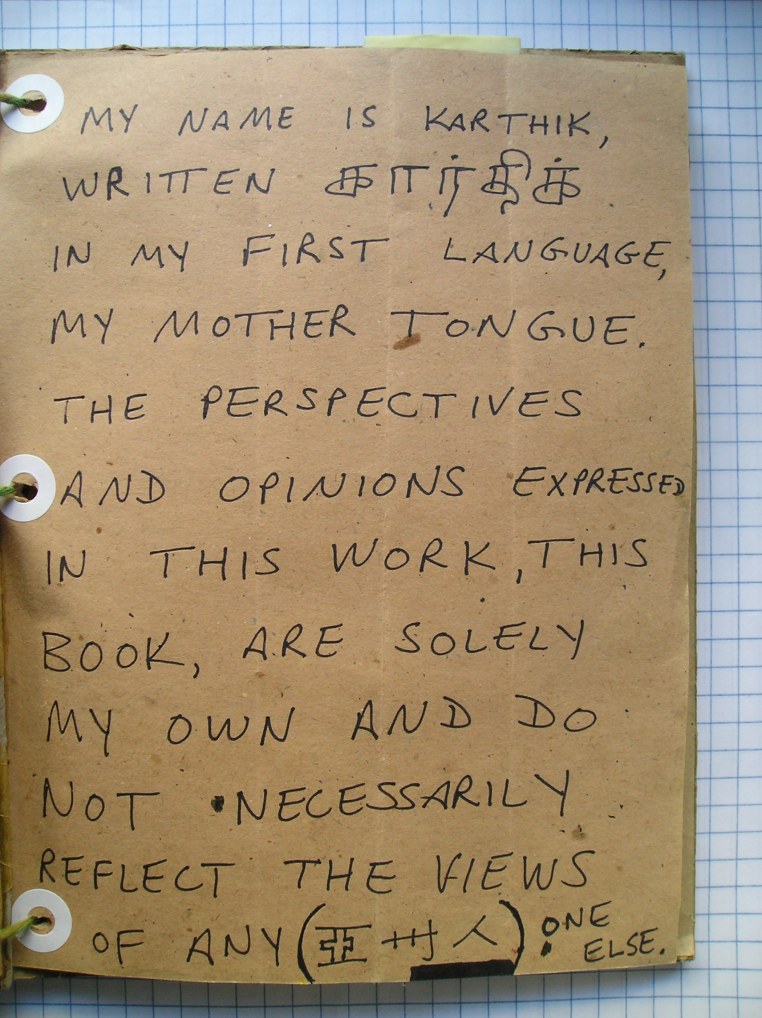 MY NAME IS KARTHIK,
WRITTEN கார்திக்
IN MY FIRST LANGUAGE,
MY MOTHER TONGUE.
THE PERSPECTIVES
AND OPINIONS EXPRESSED
IN THIS WORK, THIS
BOOK, ARE SOLELY
MY OWN AND DO
NOT NECESSARILY
REFLECT THE VIEWS
OF ANY (亞卅人) ONE
ELSE.